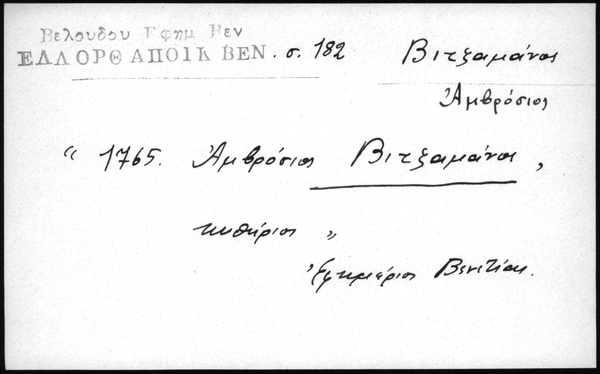 Βελουδου Εφημ Βεν
ΕΛΛΟΡΘ ΑΠΟΙΚ ΒΕΝ. σ. 182
Βιτζαμάνος
Ἀμβρόσιος
“ 1765. Ἀμβρόσιος Βιτζαμάνος,
κυθήριος „
Ἐφημέριος Βενετίας.